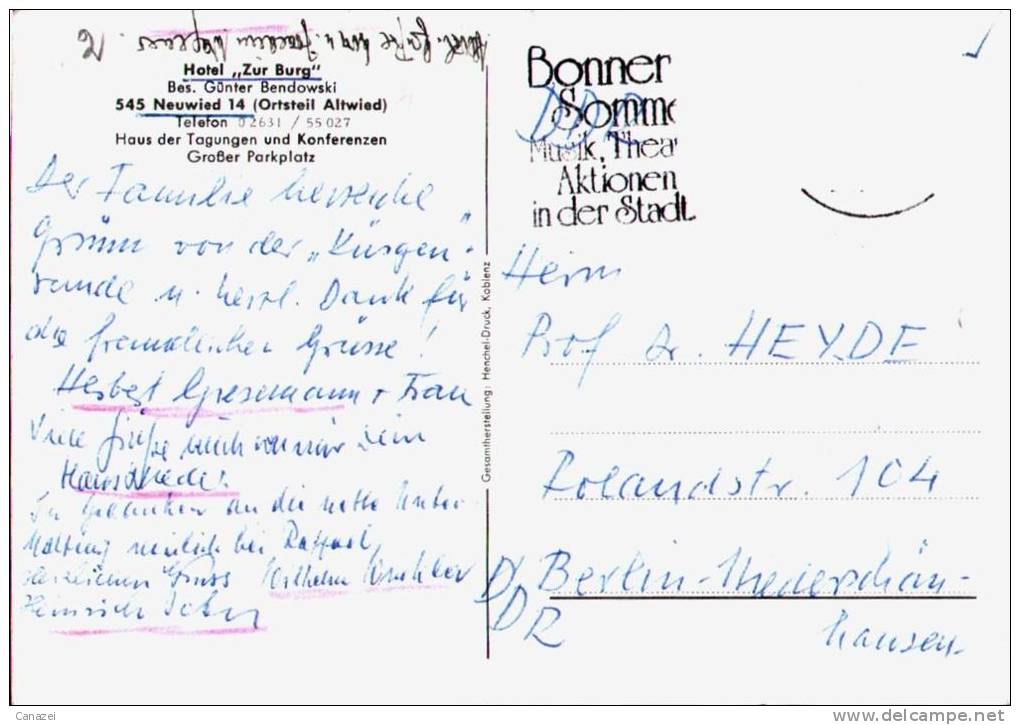 Hotel „Zur Burg"
Bes. Günter Bendowski
545 Neuwied 14 (Ortsteil Altwied)
Telefon 02631 / 55 027
Haus der Tagungen und Konferenzen
Großer Parkplatz
Der Familie herzliche
von der „Kürgen"-
runde u. herzl. Dank für
die freundlichen Grüsse!
Herbert Griesemann + Frau
Viele Grüße auch von
In Gedanken an die nette Unter-
haltung neulich bei
herzlichen Gruss Wilhelm
Heinrich
Gesamtherstellung: Henchel-Druck, Koblenz
Bonner
Somme
DDR
Musik, Thea
Aktionen
in der Stadt
Herrn
Prof Dr. HEYDE
Rolandstr. 104
Berlin-Niederschön-
hausen
DDR
Canazei
http://www.delcampe.net